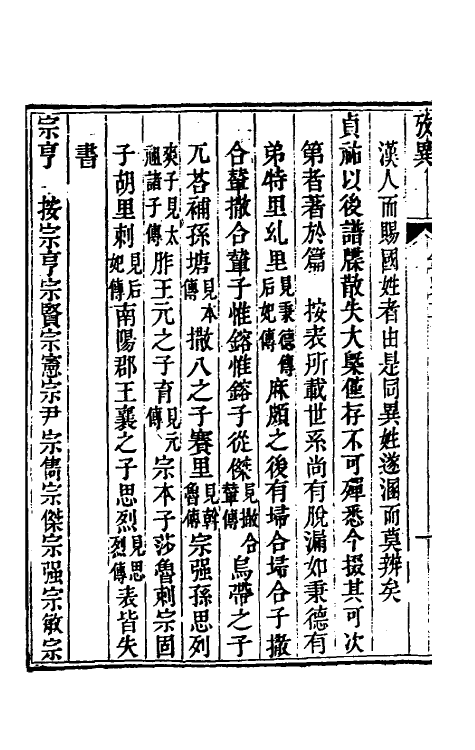 攷異
漢人而賜國姓者由是同異姓遂溷而莫辨矣
貞祐以後譜牒散失大槩僅存不可殫悉今掇其可次
第者著於篇　按表所載世系尚有脫漏如秉德有
弟特里乣里見秉德傳后妃傳麻頗之後有埽合埽合子撒
合輦撒合輦子惟鎔惟鎔子從傑見撒合輦傳烏帶之子
兀荅補孫塘見本傳撒八之子賽里見斡魯傳宗强孫思列
爽子見太祖諸子傳胙王元之子育見元傳宗本子莎魯剌宗固
子胡里剌見后妃傳南陽郡王襄之子思烈見思烈傳表皆失
書
宗亨　按宗亨宗賢宗憲宗尹宗儁宗傑宗强宗敏宗